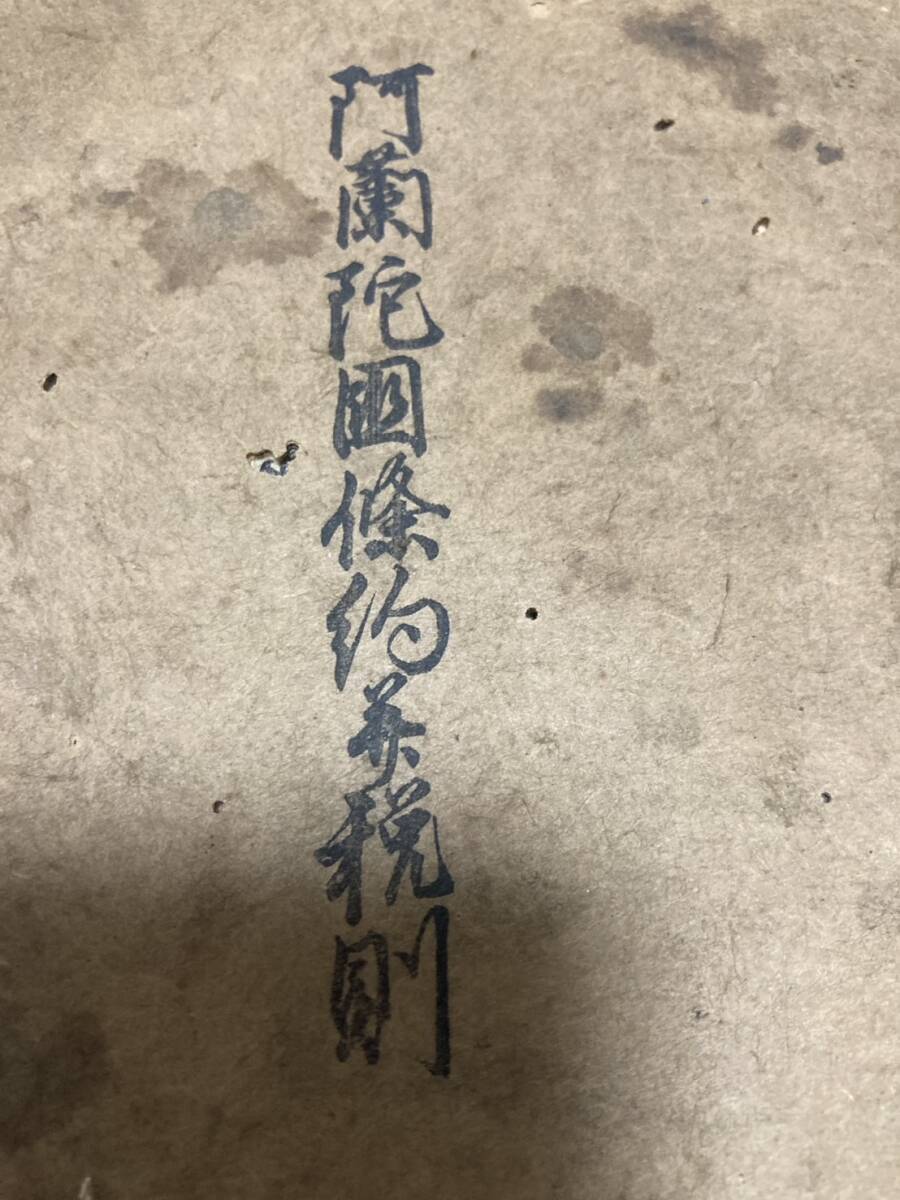 阿蘭陀國條約并税則